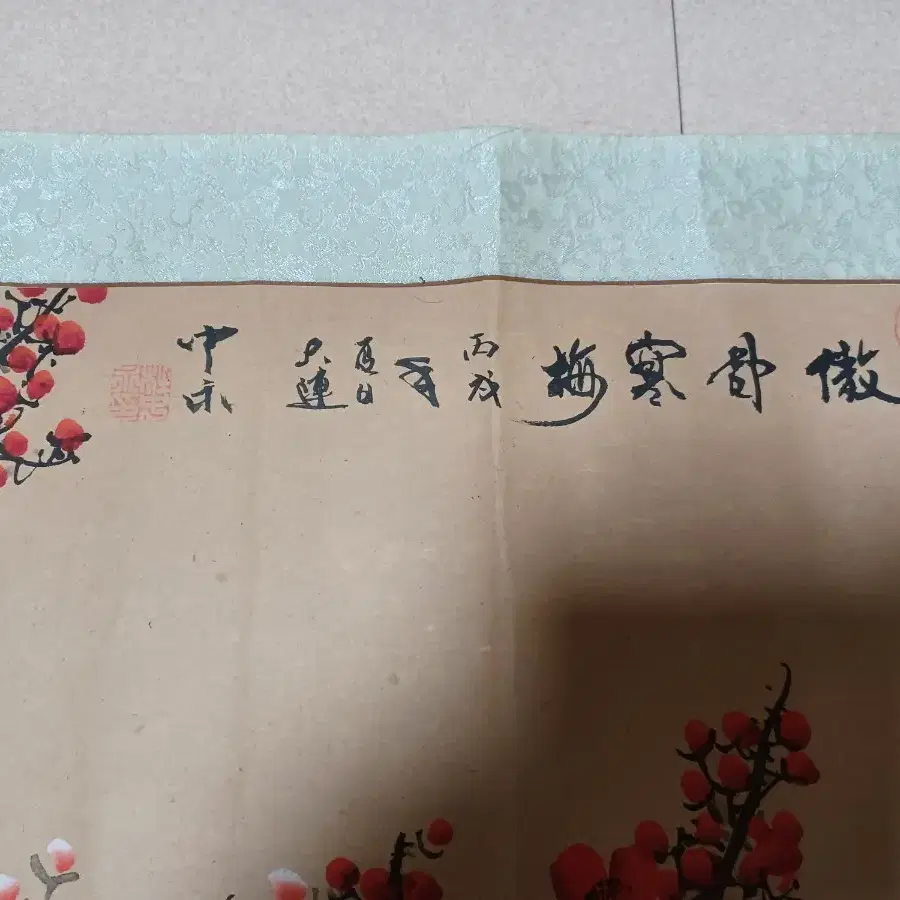 傲骨寒梅
丙戌年
夏日
大連